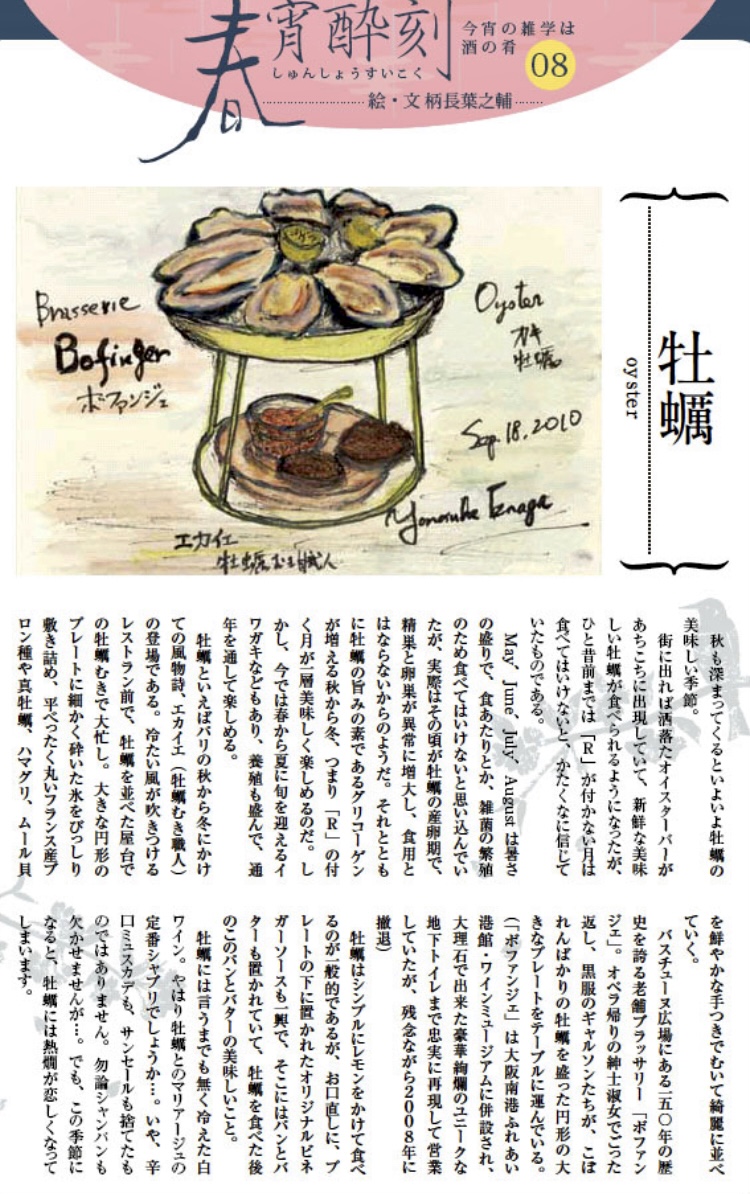 春宵酔刻
しゅんしょうすいこく
今宵の雑学は
酒の肴
08
絵・文 柄長葉之輔
牡蠣
oyster
Brasserie
Bofinger
ボファンジェ
Oyster
カキ
牡蠣
Sep. 18. 2010
Yonosuke Enaga
エカイエ
牡蠣むき職人
秋も深まってくるといよいよ牡蠣の
美味しい季節。
街に出れば洒落たオイスターバーが
あちこちに出現していて、新鮮な美味
しい牡蠣が食べられるようになったが、
ひと昔前までは「R」が付かない月は
食べてはいけないと、かたくなに信じて
いたものである。
May、June、July、August は暑さ
の盛りで、食あたりとか、雑菌の繁殖
のため食べてはいけないと思い込んでい
たが、実際はその頃が牡蠣の産卵期で、
精巣と卵巣が異常に増大し、食用と
はならないからのようだ。それととも
に牡蠣の旨みの素であるグリコーゲン
が増える秋から冬、つまり「R」の付
く月が一層美味しく楽しめるのだ。し
かし、今では春から夏に旬を迎えるイ
ワガキなどもあり、養殖も盛んで、通
年を通して楽しめる。
牡蠣といえばパリの秋から冬にかけ
ての風物詩、エカイエ（牡蠣むき職人）
の登場である。冷たい風が吹きつける
レストラン前で、牡蠣を並べた屋台で
の牡蠣むきで大忙し。大きな円形の
プレートに細かく砕いた氷をびっしり
敷き詰め、平べったく丸いフランス産ブ
ロン種や真牡蠣、ハマグリ、ムール貝
を鮮やかな手つきでむいて綺麗に並べ
ていく。
バスチューヌ広場にある一五〇年の歴
史を誇る老舗ブラッサリー「ボファン
ジェ」。オペラ帰りの紳士淑女でごった
返し、黒服のギャルソンたちが、こぼ
れんばかりの牡蠣を盛った円形の大
きなプレートをテーブルに運んでいる。
（「ボファンジェ」は大阪南港ふれあい
港館・ワインミュージアムに併設され、
大理石で出来た豪華絢爛のユニークな
地下トイレまで忠実に再現して営業
していたが、残念ながら2008年に
撤退）
牡蠣はシンプルにレモンをかけて食べ
るのが一般的であるが、お口直しに、プ
レートの下に置かれたオリジナルビネ
ガーソースも一興で、そこにはパンとバ
ターも置かれていて、牡蠣を食べた後
のこのパンとバターの美味しいこと。
牡蠣には言うまでも無く冷えた白
ワイン。やはり牡蠣とのマリアージュの
定番シャブリでしょうか…。いや、辛
口ミュスカデも、サンセールも捨てたも
のではありません。勿論シャンパンも
欠かせませんが…。でも、この季節に
なると、牡蠣には熱燗が恋しくなって
しまいます。